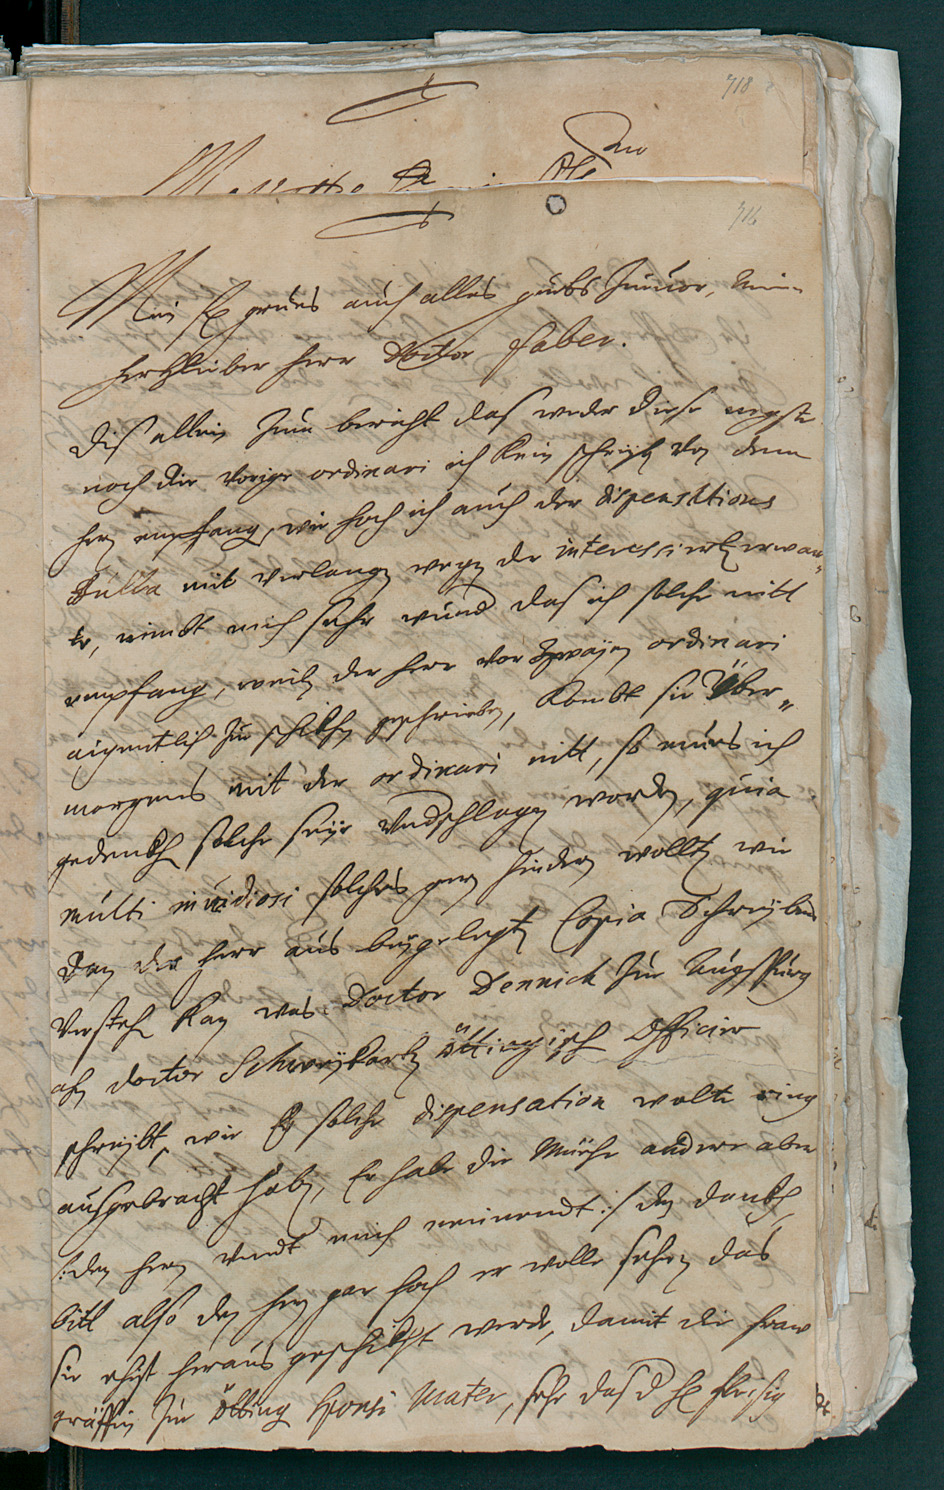 718
716
Mein fr grues auch alles guets Zuuor, Mein
hertzlieber herr Doctor Faber.
Dis allein zum bericht das weder diese negste
noch die vorige ordinari ich kein schreiben von dem
hern empfang, wie hoch ich auch der dispensations
Bulla mit verlangen wegen der interessierten erwar„
te, nimbt mich sehr wund das ich solche nitt
empfang, weil der herr vor zwayen ordinari
aigentlich zu schikhen geschrieben, kombt sie Über„
morgens mit der ordinari nitt, so mues ich
gedenckh solche seye undschlagen worden, quia
multi inuidiosi solches gern hindern wollten wie
dan der herr aus beygelegten Copia Schreybens
versteh kan was Doctor Dennich zu Augspurg
ahn doctor Schweykart öttingisch Officier
schreybt, wie Er solche dispensation wolte ring
ausgebracht haben, Er habe die Müehe andere aber
/: den hern undt mich meinendt :/ den danckh,
bitt also den hern gar hoch er wolle sehen das
sie ehist heraus geschikht werde, damit die fraw
gräffin zu Ötting sponsi Mater, sehe das d he fleisig